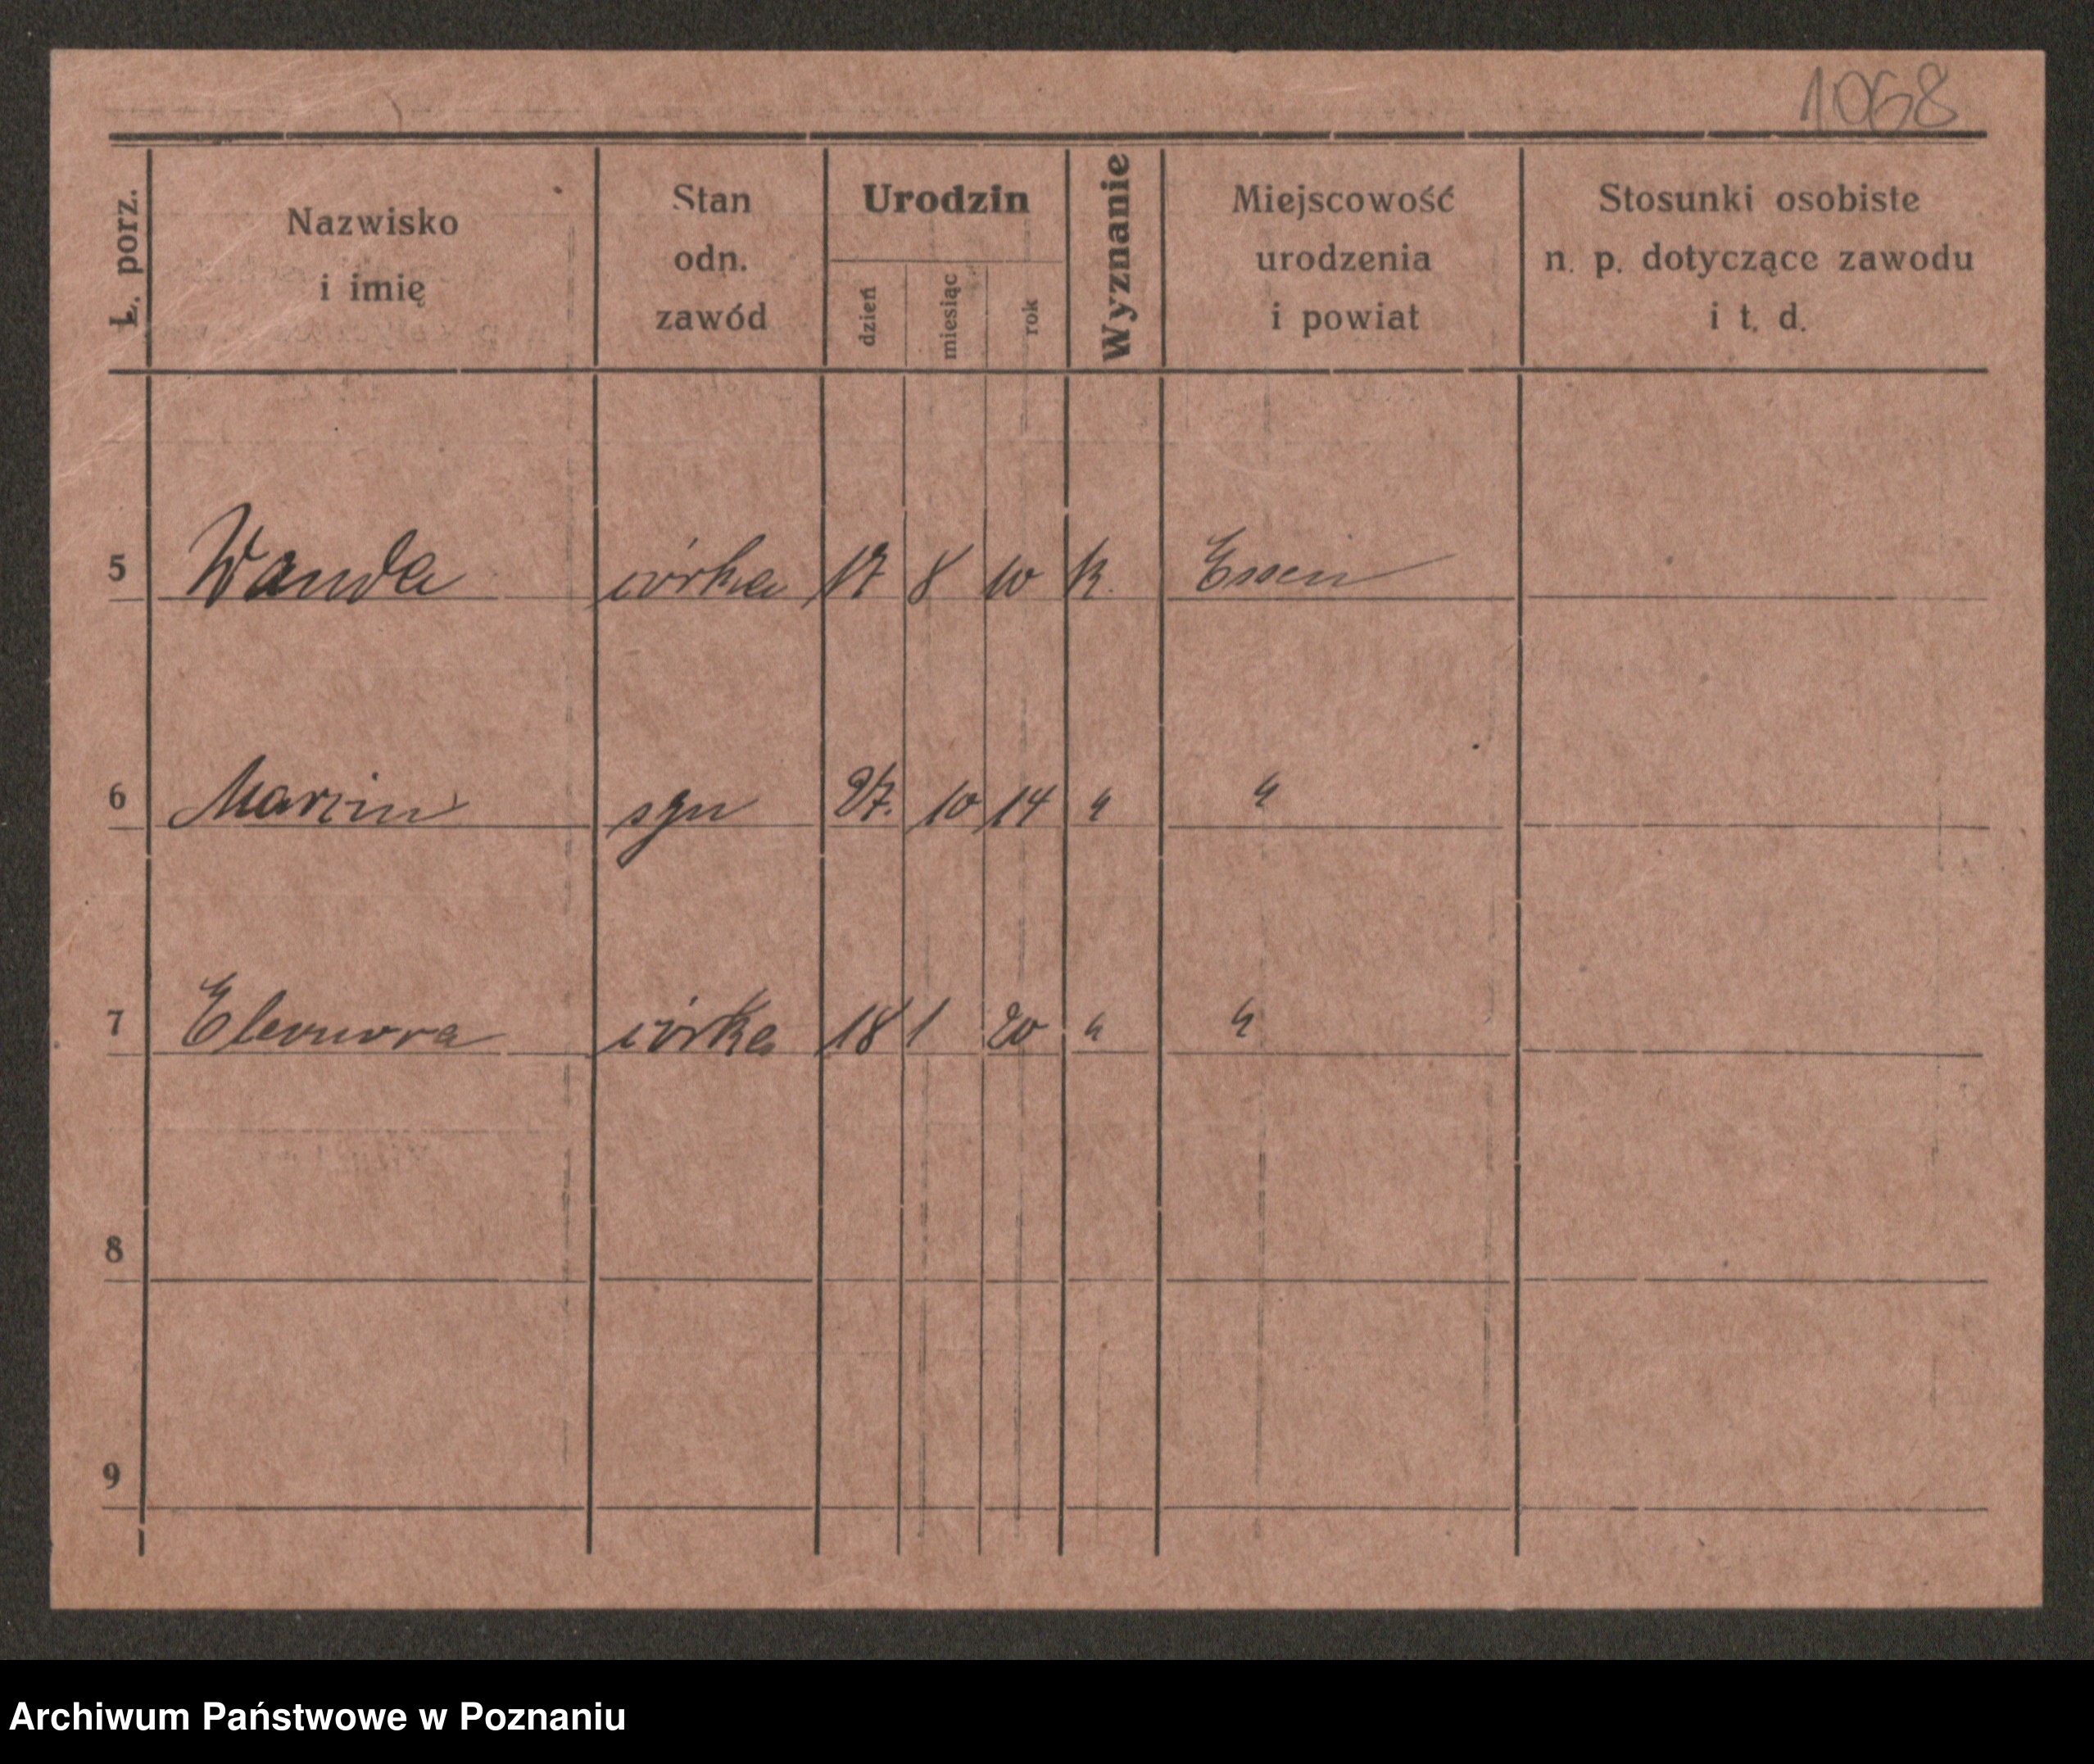 1068
L. porz.
Nazwisko
i imię
Stan
odn.
zawód
Urodzin
dzień
miesiąc
rok
Wyznanie
Miejscowość
urodzenia
i powiat
Stosunki osobiste
n. p. dotyczące zawodu
i t. d.
5 Wanda córka 17 8 10 k. Essen
6 Marcin syn 27. 10 14 " "
7 Eleonora córka 18 1 20 " "
8
9
Archiwum Państwowe w Poznaniu